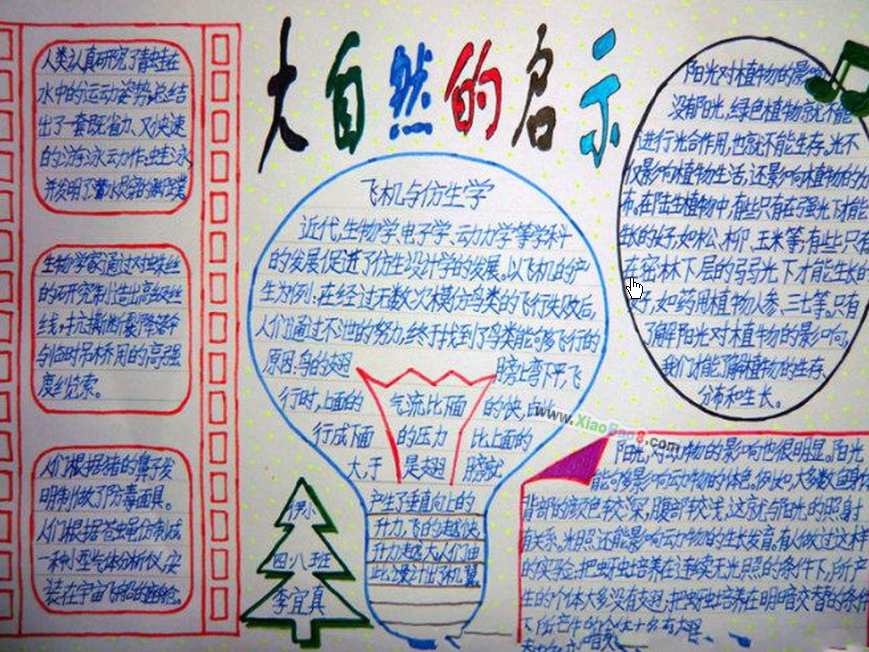 大自然的启示
人类认真研究了青蛙在
水中的运动姿势,总结
出了一套既省力、又快速
的游泳动作:蛙泳,
并发明了潜水员的
生物学家通过对蛛丝
的研究制造出高级丝
线,抗撕断裂降落伞
与临时吊桥用的高强
度纟览索。
人们根据猪的鼻子发
明制做了防毒面具。
人们根据苍虫黾仿制成
一种小型气体分析仪,安
装在宇宙飞船的座舱。
飞机与仿生学
近代,生物学、电子学、动力学等学科
的发展促进了仿生设计学的发展。以飞机的产
生为例:在经过无数次模仿鸟类的飞行失败后,
人们通过不泄的努力,终于找到了鸟类能够飞行的
原因:鸟的翅膀上弯下平,飞
行时,上面的气流比下面的快,由此
行成下面的压力比上面的
大于是翅膀就
产生了垂直向上的
升力,飞的越快,
升力越大。人们由
此设计出了机翼
伊小
四·八班
李宜真
阳光对植物的影响
没有阳光,绿色植物就不能
进行光合作用,也就不能生存。光不
仅影响植物生活,还影响植物的分
布。在陆生植物中,有些只有在强光下才能
生长的好,如松、柳、玉米等;有些只有
在密林下层的弱光下才能生长的
好,如药用植物人参、三七等。只有
了解阳光对植物的影响,
我们才能了解植物的生存、
分布和生长。
阳光,对动物的影响也很明显。阳光
能够影响动物的体色。例如:大多数鱼身体
背部的颜色较深,腹部较浅,这就与阳光的照射
有关系。光照还能影响动物的生长发育。有人做过这样
的实验:把蚜虫培养在连续无光照的条件下,所产
生的个体大多没有翅;把蚜虫培养在明暗交替的条件
下所产生的个体大多有翅
www.XiaoBao8.com